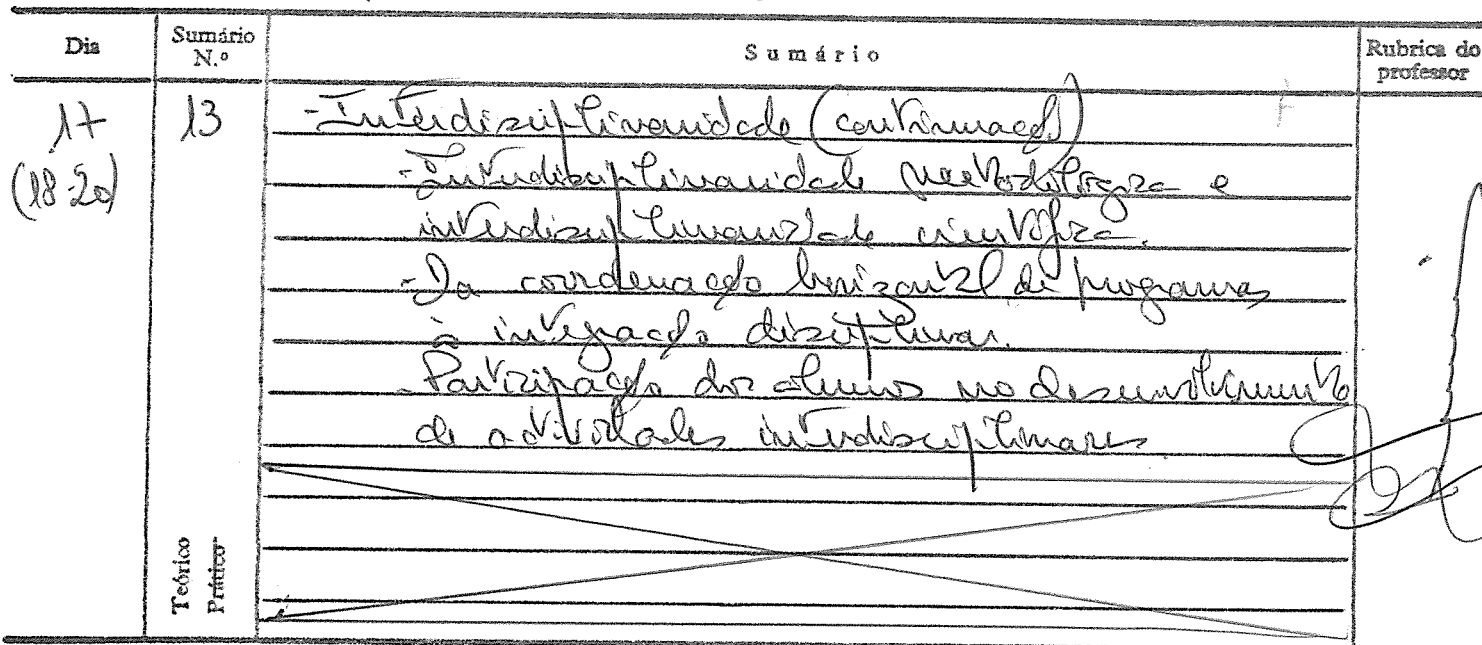 Dia
Sumário N.º
Sumário
Rubrica do professor
17
(18-20)
13
- Interdisciplinaridade (continuação)
- Interdisciplinaridade metodológica e
interdisciplinaridade científica.
- Da coordenação horizontal de programas
à integração disciplinar.
- Participação dos alunos no desenvolvimento
de actividades interdisciplinares.
Teórico
Prático